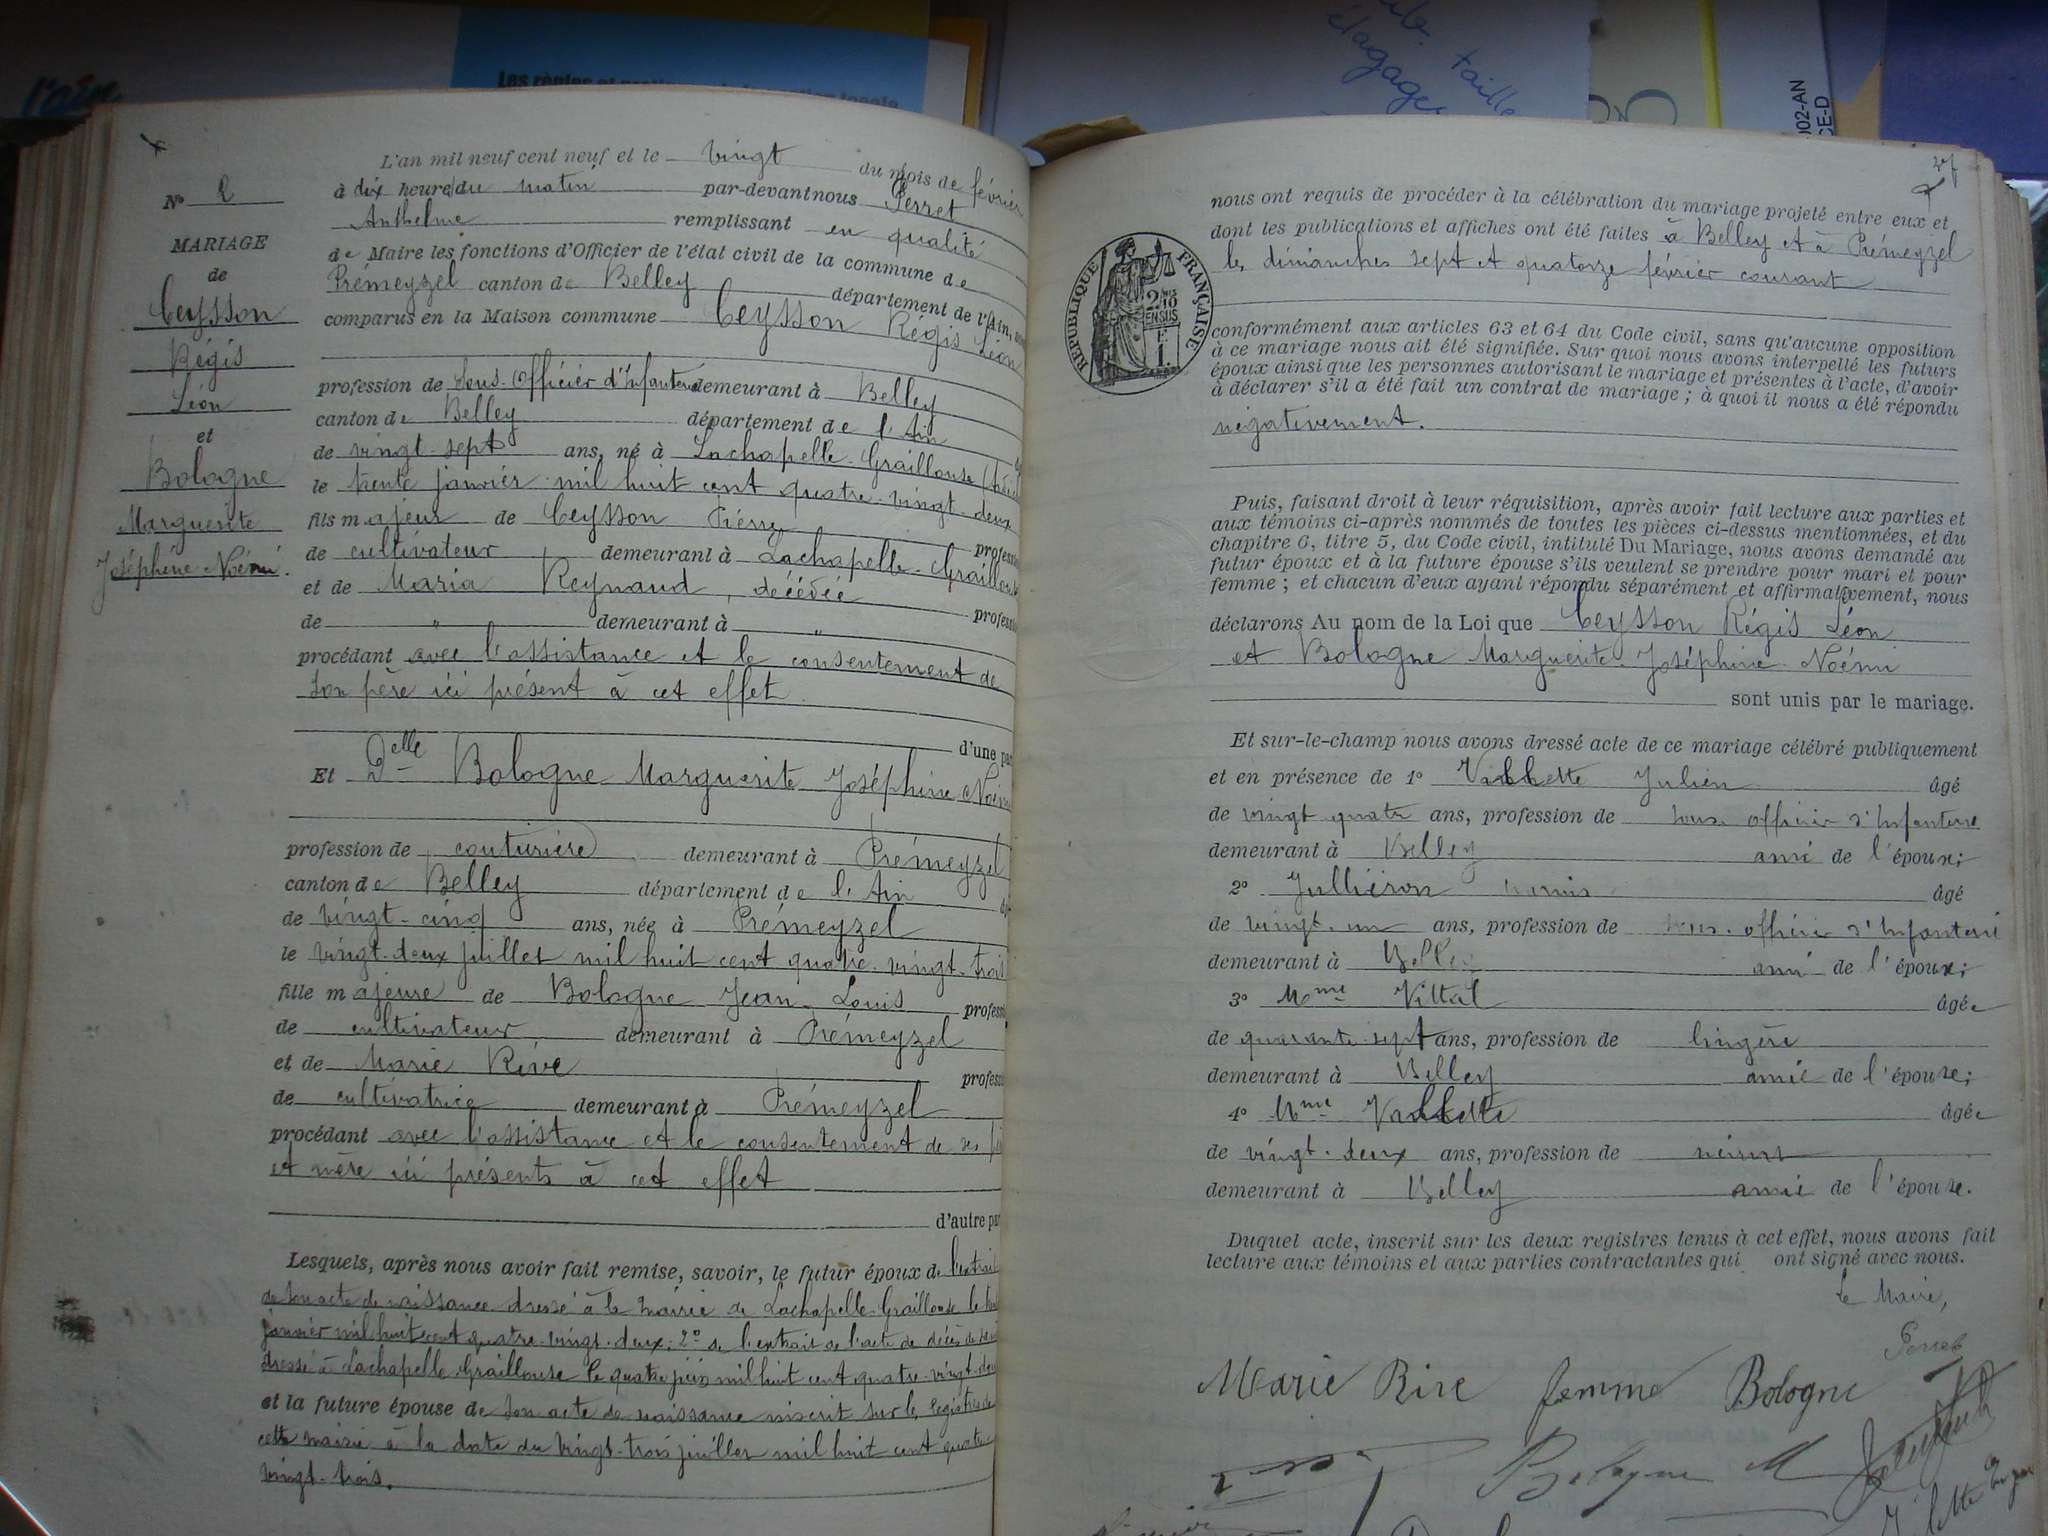 l'ain
Les règles et
taille
élagage
002-AN
CE-D
L'an mil neuf cent neuf et le vingt du mois de février
N° 2
à dix heure du matin par-devant nous Perret
Anthelme remplissant en qualité
MARIAGE
de
Ceysson
Régis
Léon
et
Bologne
Marguerite
Joséphine Noémi.
de Maire les fonctions d'Officier de l'état civil de la commune de
Prémeyzel canton de Belley département de l'Ain,
comparus en la Maison commune Ceysson Régis Léon
profession de Sous-Officier d'Infanterie demeurant à Belley
canton de Belley département de l'Ain
de vingt-sept ans, né à Lachapelle-Graillouse
le trente janvier mil huit cent quatre-vingt-deux
fils majeur de Ceysson Pierre
de cultivateur demeurant à Lachapelle-Graillouse
et de Maria Reynaud, décédée
de " demeurant à "
procédant avec l'assistance et le consentement de
son père ici présent à cet effet
d'une par
Et Delle Bologne Marguerite Joséphine Noémi
profession de couturière demeurant à Prémeyzel
canton de Belley département de l'Ain
de vingt-cinq ans, née à Prémeyzel
le vingt-deux juillet mil huit cent quatre-vingt-trois
fille majeure de Bologne Jean-Louis
de cultivateur demeurant à Prémeyzel
et de Marie Rive
de cultivatrice demeurant à Prémeyzel
procédant avec l'assistance et le consentement de ses
et mère ici présents à cet effet
d'autre par
Lesquels, après nous avoir fait remise, savoir, le futur époux de l'extrait
de son acte de naissance dressé à la mairie de Lachapelle-Graillouse le
janvier mil huit cent quatre-vingt-deux; 2° de l'extrait de l'acte de décès de
dressé à Lachapelle-Graillouse le quatre juin mil huit cent quatre-vingt
et la future épouse de son acte de naissance inscrit sur les registres de
cette mairie à la date du vingt-trois juillet mil huit cent quatre-
vingt-trois.
nous ont requis de procéder à la célébration du mariage projeté entre eux et
dont les publications et affiches ont été faites à Belley et à Prémeyzel
les dimanches sept et quatorze février courant
RÉPUBLIQUE FRANÇAISE
conformément aux articles 63 et 64 du Code civil, sans qu'aucune opposition
à ce mariage nous ait été signifiée. Sur quoi nous avons interpellé les futurs
époux ainsi que les personnes autorisant le mariage et présentes à l'acte, d'avoir
à déclarer s'il a été fait un contrat de mariage; à quoi il nous a été répondu
négativement.
Puis, faisant droit à leur réquisition, après avoir fait lecture aux parties et
aux témoins ci-après nommés de toutes les pièces ci-dessus mentionnées, et du
chapitre 6, titre 5, du Code civil, intitulé Du Mariage, nous avons demandé au
futur époux et à la future épouse s'ils veulent se prendre pour mari et pour
femme; et chacun d'eux ayant répondu séparément et affirmativement, nous
déclarons Au nom de la Loi que Ceysson Régis Léon
et Bologne Marguerite Joséphine Noémi
sont unis par le mariage.
Et sur-le-champ nous avons dressé acte de ce mariage célébré publiquement
et en présence de 1° Vallette Julien âgé
de vingt quatre ans, profession de sous officier d'Infanterie
demeurant à Belley ami de l'époux;
2° Julliéron âgé
de vingt-un ans, profession de sous-officier d'Infanterie
demeurant à Belley ami de l'époux;
3° Mme Vittal âgée
de quarante-sept ans, profession de lingère
demeurant à Belley amie de l'épouse;
4° Mme Vallette âgée
de vingt-deux ans, profession de
demeurant à Belley amie de l'épouse.
Duquel acte, inscrit sur les deux registres tenus à cet effet, nous avons fait
lecture aux témoins et aux parties contractantes qui ont signé avec nous.
Le Maire,
Perret
Marie Rive femme Bologne
Bologne M